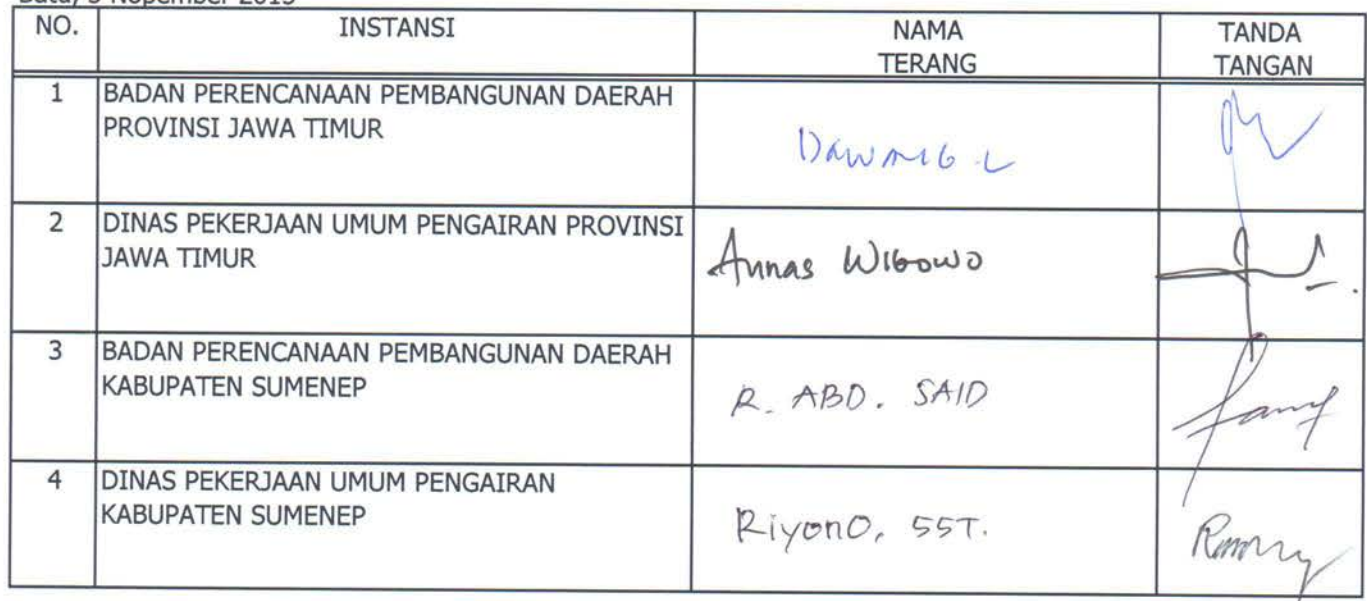 NO. INSTANSI NAMA TERANG TANDA TANGAN
1 BADAN PERENCANAAN PEMBANGUNAN DAERAH
PROVINSI JAWA TIMUR
2 DINAS PEKERJAAN UMUM PENGAIRAN PROVINSI
JAWA TIMUR
Annas Wibowo
3 BADAN PERENCANAAN PEMBANGUNAN DAERAH
KABUPATEN SUMENEP
R. ABD. SAID
4 DINAS PEKERJAAN UMUM PENGAIRAN
KABUPATEN SUMENEP
Riyono, SST.